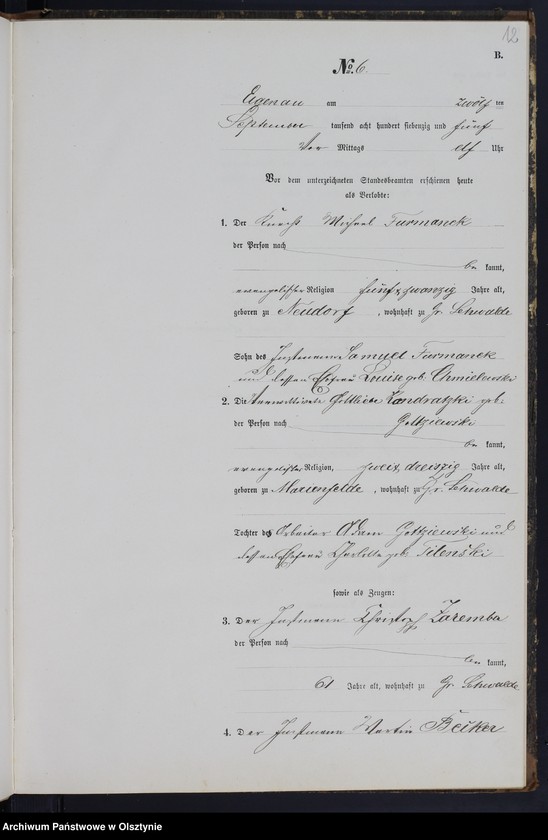 12
B.
No. 6.
Eigenau am zwölf ten
September tausend acht hundert siebenzig und fünf
Vor Mittags elf Uhr
Vor dem unterzeichneten Standesbeamten erschienen heute
als Verlobte:
1. Der Knecht Michael Furmanek
der Person nach
be kannt,
evangelischer Religion fünf & zwanzig Jahre alt,
geboren zu Neudorf, wohnhaft zu Gr Schwalde
Sohn des Instmann Samuel Furmanek
und dessen Ehefrau Louise geb. Chmielewski
2. Die verwittwete Gottliebe Kondratzki geb.
der Person nach Gottziewski
be kannt,
evangelischer Religion, zwei & dreiszig Jahre alt,
geboren zu Marienfelde, wohnhaft zu Gr. Schwalde
Tochter des Arbeiter Adam Gottziewski und
dessen Ehefrau Charlotte geb.
sowie als Zeugen:
3. Der Instmann Christoph Zaremba
der Person nach
be kannt,
61 Jahre alt, wohnhaft zu Gr Schwalde
4. Der Instmann Martin Beiker
Archiwum Państwowe w Olsztynie